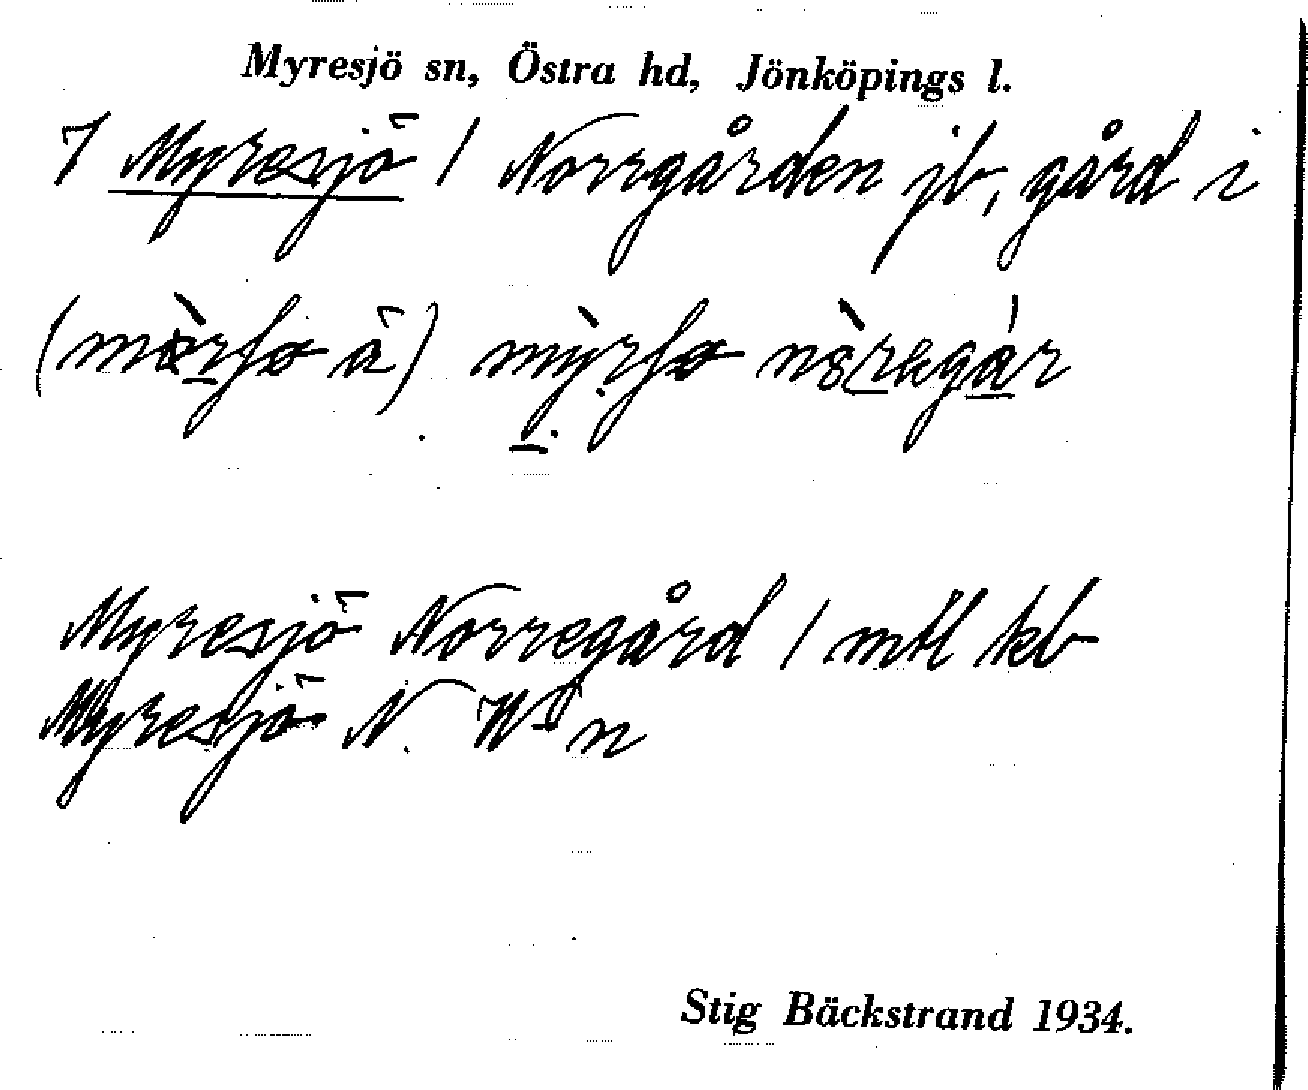 Myresjö sn, Östra hd, Jönköpings l.
7 Myresjö / Norrgården jb, gård i
Myresjö Norregård / mtl kb
Myresjö N. n
Stig Bäckstrand 1934.